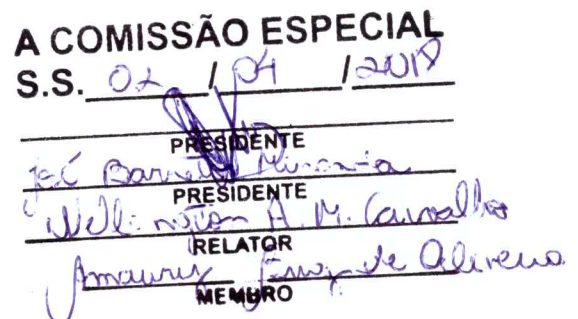 A COMISSÃO ESPECIAL
S.S. 02 / 04 / 2018
PRESIDENTE
José Barreto Miranda
PRESIDENTE
Wellington A. M. Carvalho
RELATOR
Amauriz de Oliveira
MEMBRO